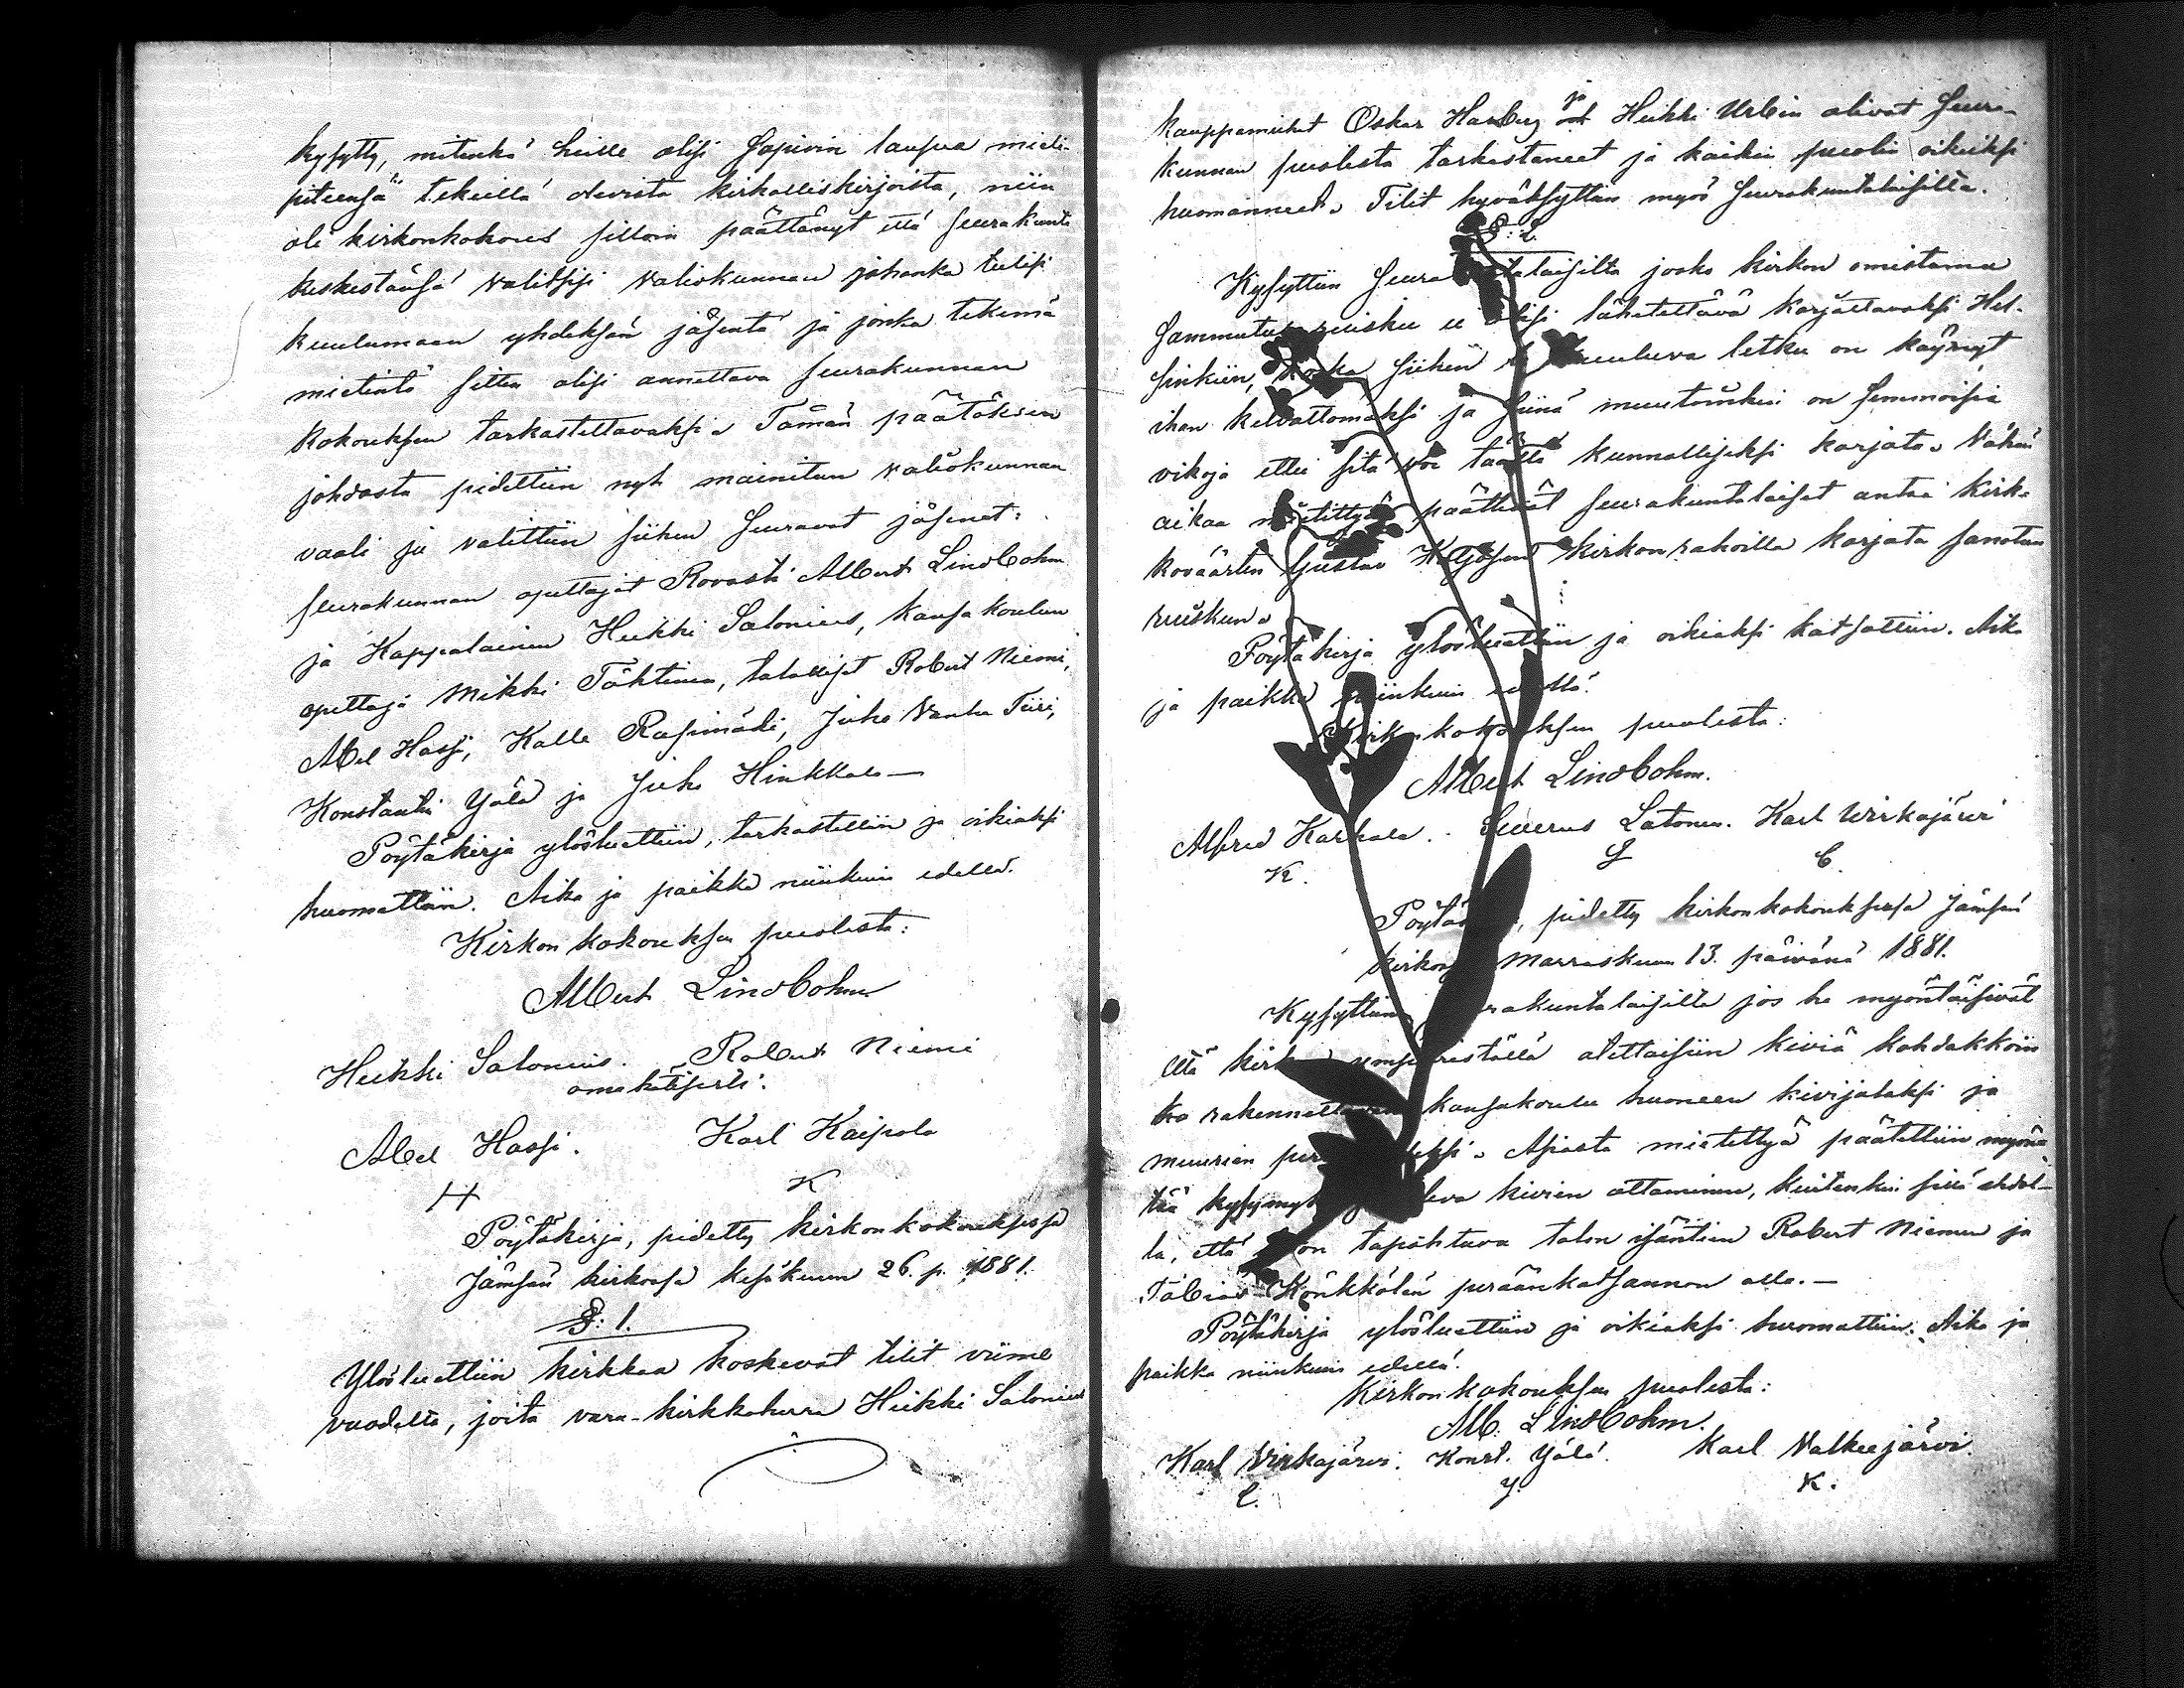 kysytty, mitenkä heille olisi sopivin lausua mieli-
piteensä tekeillä olevista kirkolliskirjoista, niin
oli kirkonkokous silloin päättänyt että seurakunta
keskestänsä valitsisi valiokunnan johonka tulisi
kuulumaan yhdeksän jäsentä ja jonka tekemä
mietintö sitten olisi annettava seurakunnan
kokouksen tarkastettavaksi. Tämän päätöksen
johdosta pidettiin nyt mainitun valiokunnan
vaali ja valittiin siihen seuraavat jäsenet:
seurakunnan opettajat Rovasti Albert Lindbohm
ja Kappalainen Heikki Salonius, kansakoulun
opettaja Mikki Tähtinen, talolliset Robert Niemi,
Abel Hassi, Kalle Rasinmäki, Juho Vanha Tiiri,
Konstantin Ylä ja Juho Hinkkala —
Pöytäkirja ylösluettiin, tarkastettiin ja oikiaksi
huomattiin. Aika ja paikka niinkuin edellä.
Kirkonkokouksen puolesta:
Albert Lindbohm
Heikki Salonius. Robert Niemi
omakätisesti.
Abel Hassi. Karl Kaipola
H K
Pöytäkirja, pidetty kirkonkokouksessa
Jämsän kirkossa kesäkuun 26. p. 1881.
§: 1.
Ylösluettiin kirkkaa koskevat tilit viime
vuodelta, joita vara-kirkkoherra Heikki Salonius
kauppamiehet Oskar Harberg ja Heikki Urbin olivat seura-
kunnan puolesta tarkastaneet ja kaikin puolin oikeiksi
huomanneet. Tilit hyväksyttiin myös seurakuntalaisilta.
§: 2.
Kysyttiin seurakuntalaisilta josko kirkon omistama
sammutusruisku ei olisi lähetettävä korjattavaksi Hel-
sinkiin, koska siihen kuuluva letku on käynyt
ihan kelvottomaksi ja siinä muutoinkin on semmoisia
vikoja ettei sitä voi täällä kunnollisesti korjata. Vähän
aikaa mietittyä päättivät seurakuntalaiset antaa kirk-
koväärten Gustav kirkon rahoilla korjata sanotun
ruiskun.
Pöytäkirja ylösluettiin ja oikiaksi katsottiin. Aika
ja paikka niinkuin edellä.
Kirkonkokouksen puolesta:
Albert Lindbohm.
Alfred Karkala. Severus Latonen. Karl Wirkajärvi
K. L C.
Pöytäkirja, pidetty kirkonkokouksessa Jämsän
kirkossa Marraskuun 13. päivänä 1881.
Kysyttiin seurakuntalaisilta jos he myöntäisivät
että kirkon ympäristöllä otettaisiin kiviä kohdakkoin
ko rakennettavan kansakoulu huoneen kivijalaksi ja
muurien Asiasta mietittyä päätettiin myön-
tää kivien ottaminen, kuitenkin sillä ehdol-
la, että se on tapahtuva talon isäntien Robert Niemen ja
Tobias Könkkölän peräänkatsannon alla. —
Pöytäkirja ylösluettiin ja oikiaksi huomattiin. Aika ja
paikka niinkuin edellä.
Kirkonkokouksen puolesta:
Alb. Lindbohm.
Karl Virkajärvi. Konst. Ylä. Karl Valkeejärvi.
C. Y. K.